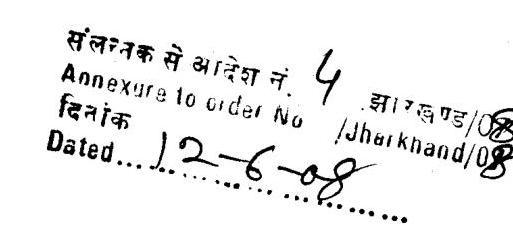 संलग्नक से आदेश नं. 4 झारखण्ड/08
Annexure to order No /Jharkhand/08
दिनांक
Dated... 12-6-08